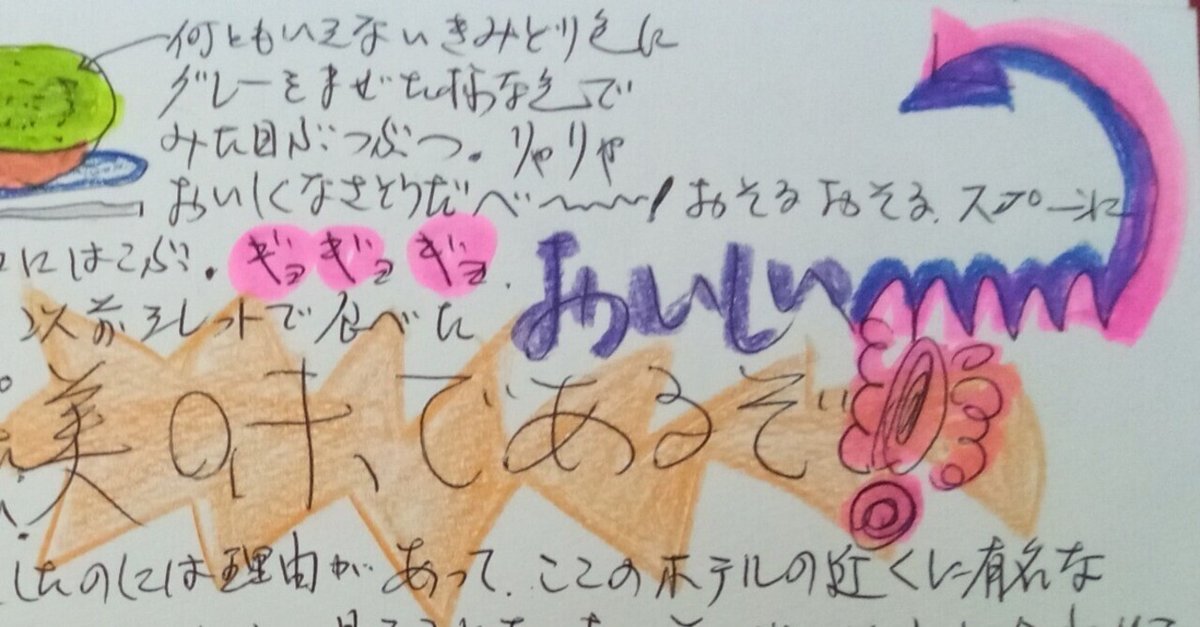 何ともいえないきみどり色に
グレーをまぜた様な色で
みた目ぶつぶつ。りゃりゃ
おいしくなさそうだべ〜〜〜! おそるおそる、スプーンに
にはこぶ。ギョギョギョ.
以前 トレットで食べた おいしい
美味、であるぞ!!
したのには理由があって、ここのホテルの近くに有名な